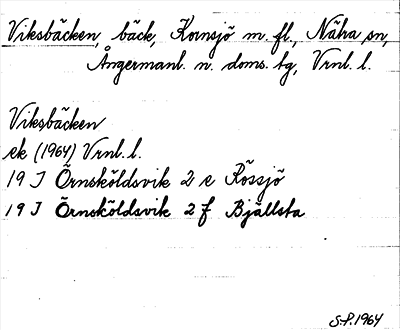 Viksbäcken, bäck, Kornsjö m. fl., Nätra sn,
Ångermanl. n. doms. tg, Vrnl. l.
Viksbäcken
ek (1964) Vrnl. l.
19 J Örnsköldsvik 2 e Rössjö
19 J Örnsköldsvik 2 f Bjällsta
S.P. 1964